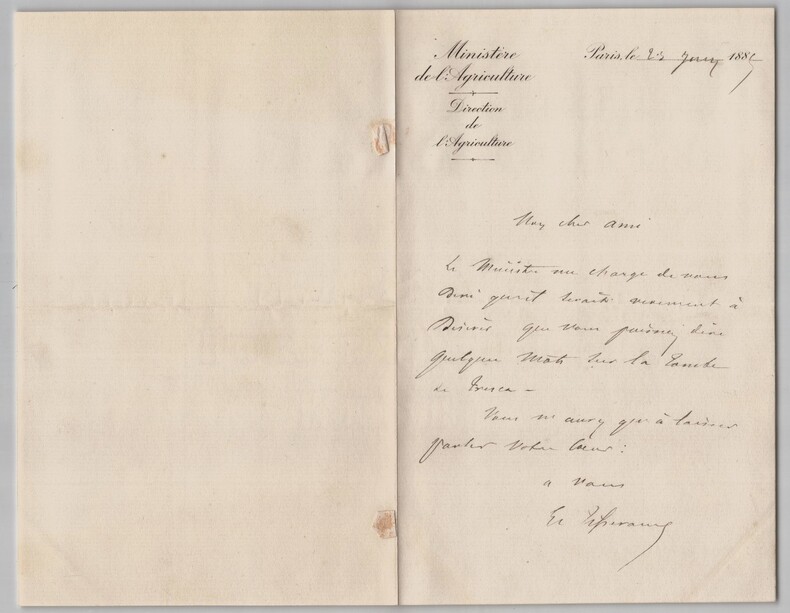 Ministère
de l'Agriculture
Direction
de
l'Agriculture
Paris, le 23 Juin 1885
Mon cher ami
Le Ministre me charge de vous
dire qu'il serait vivement à
désirer que vous puissiez dire
quelques mots sur la tombe
de Tresca –
Vous n'aurez qu'à laisser
parler votre cœur :
à vous
E. Tisserand